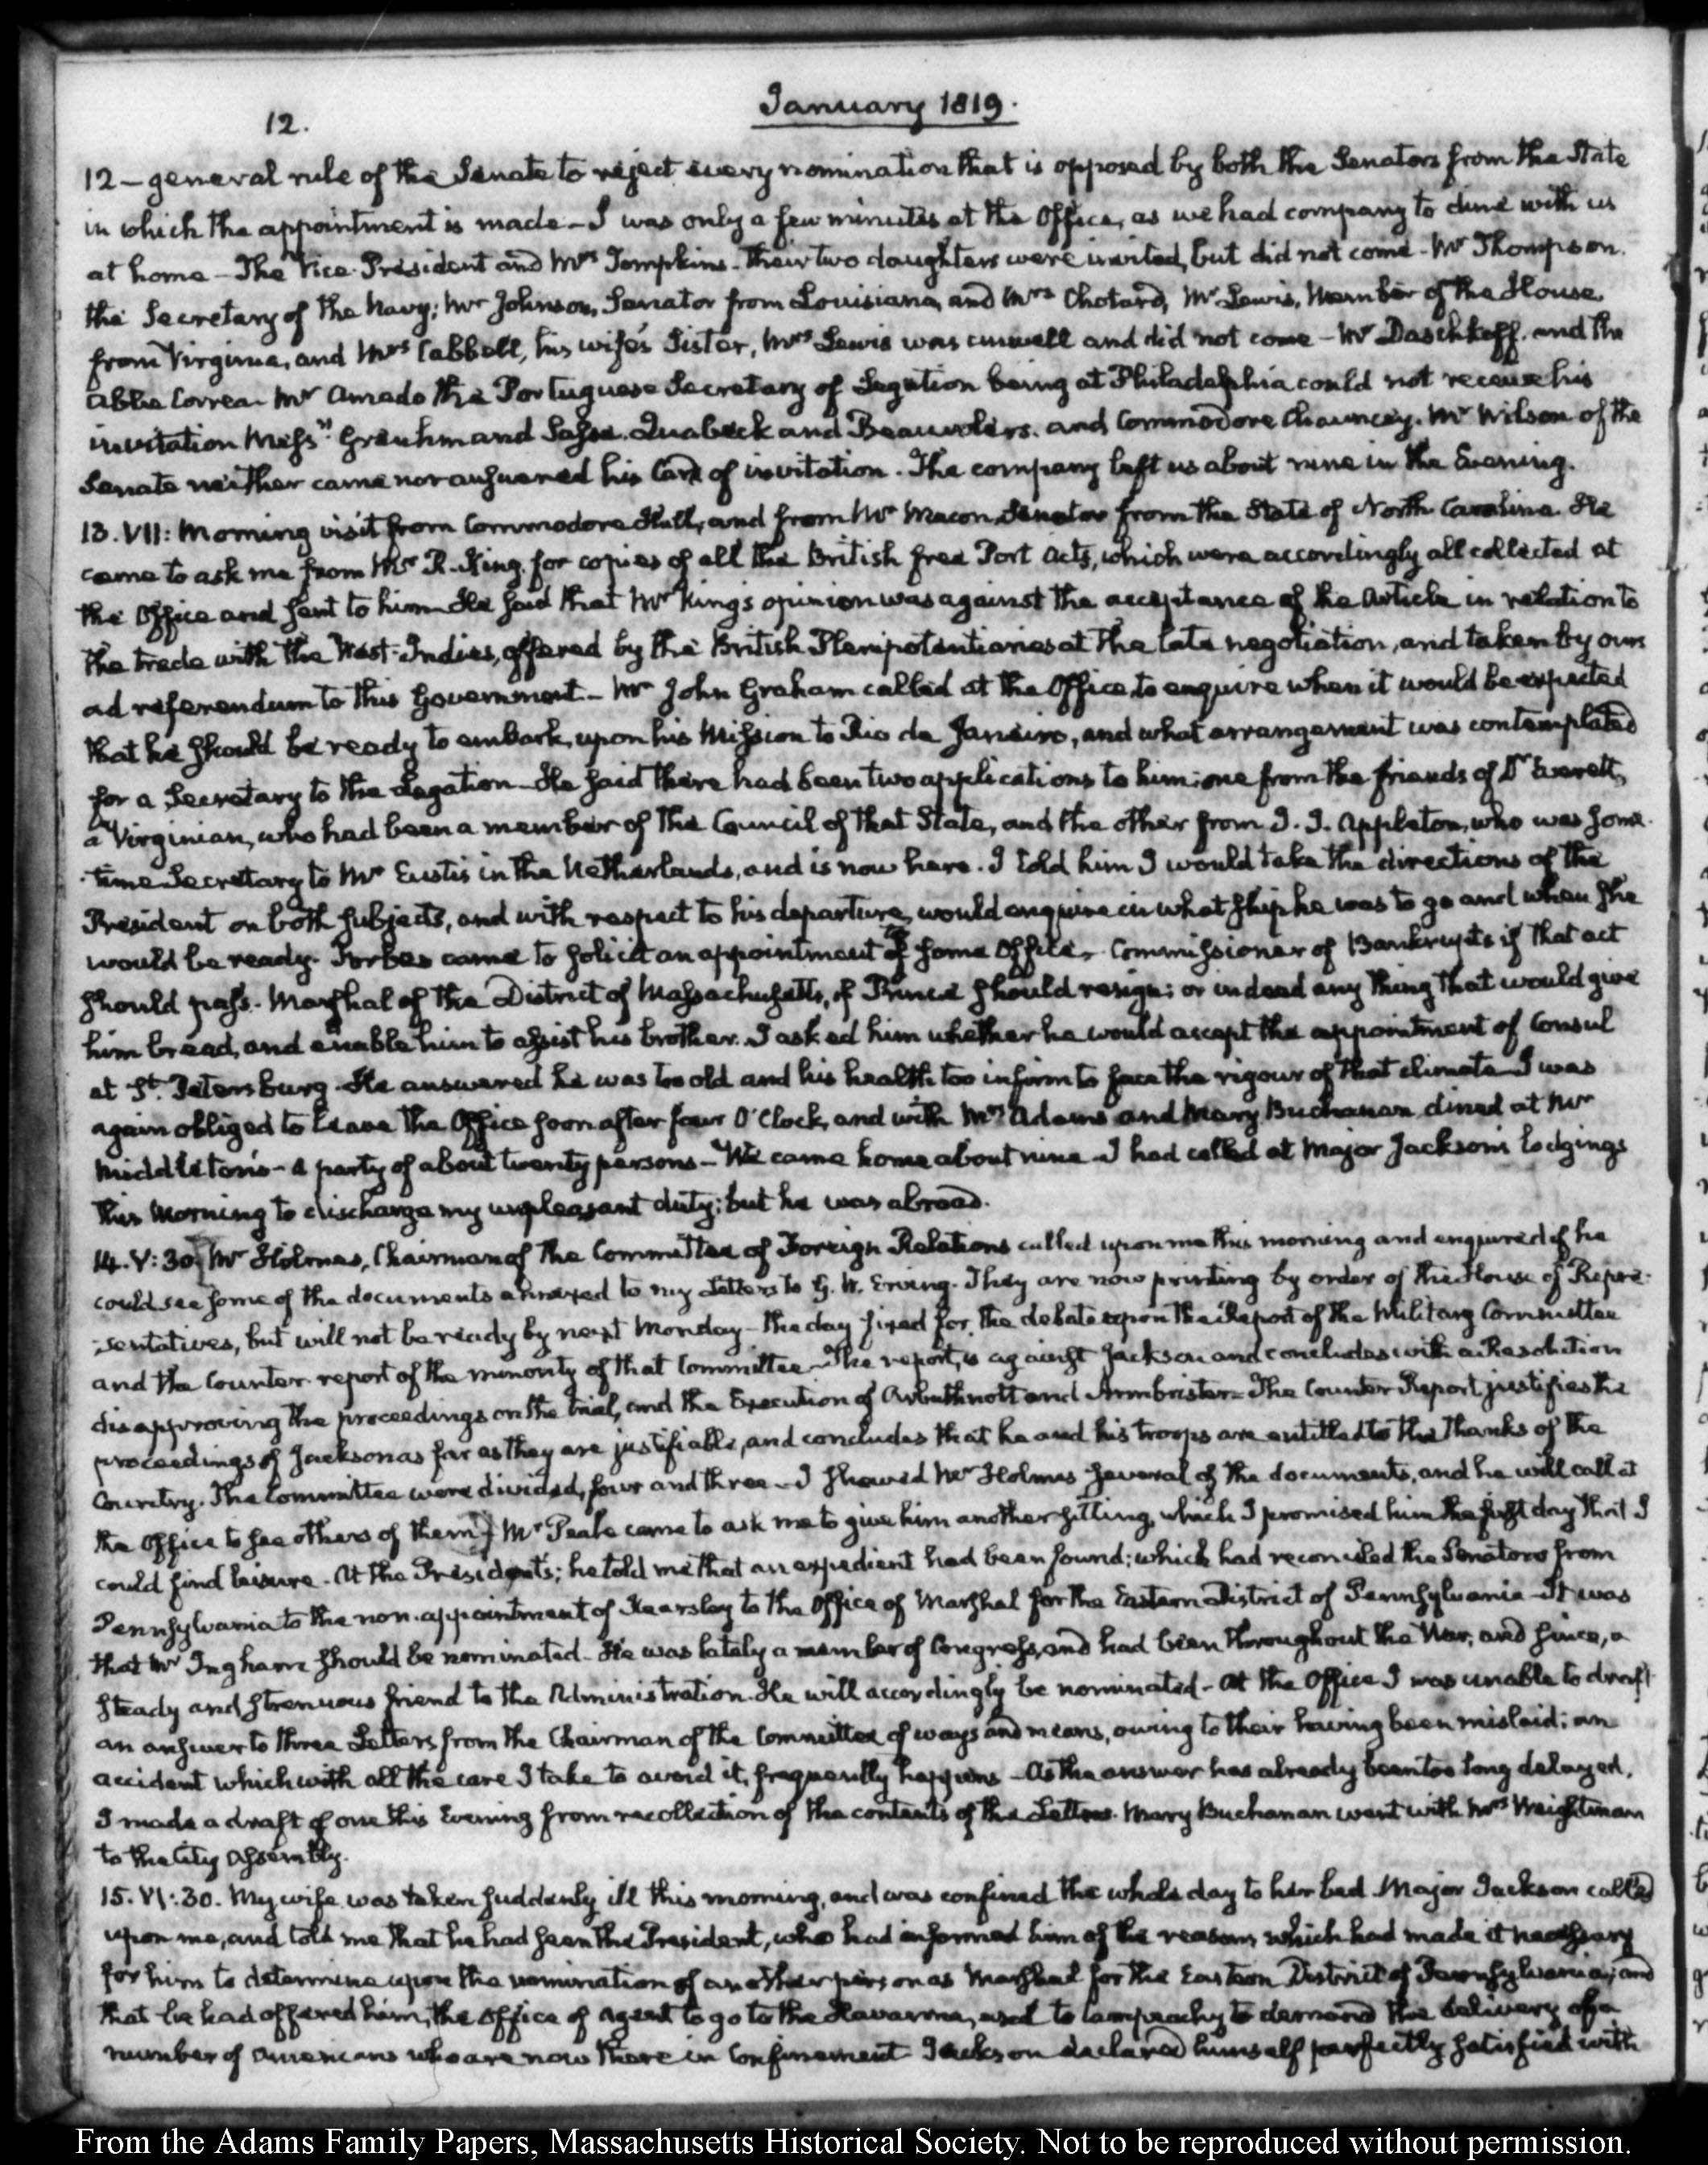 January 1819.
12.
12 – general rule of the Senate to reject every nomination that is opposed by both the Senators from the State
in which the appointment is made – I was only a few minutes at the Office, as we had company to dine with us
at home – The Vice-President and Mrs Tompkins – their two daughters were invited, but did not come – Mr Thompson
the Secretary of the Navy; Mr Johnson, Senator from Louisiana, and Mrs Chotard, Mr Lewis, Member of the House,
from Virginia, and Mrs Cabbell, his wife's Sister, Mrs Lewis was unwell and did not come – Mr Daschkoff, and the
Abbé Correa. Mr Amado the Portuguese Secretary of Legation being at Philadelphia could not receive his
invitation Messrs Greuhm and Salse. Quabeck and Beauvolers. and Commodore Chauncey. Mr Wilson of the
Senate neither came nor answered his Card of invitation. The company left us about nine in the Evening.
13. VII: Morning visit from Commodore Hull, and from Mr Macon, Senator from the State of North Carolina. He
came to ask me from Mr R. King, for copies of all the British free Port Acts, which were accordingly all collected at
the Office and sent to him – He said that Mr King's opinion was against the acceptance of the Article in relation to
the trade with the West-Indies, offered by the British Plenipotentiaries at the late negotiation, and taken by ours
ad referendum to this Government – Mr John Graham called at the Office to enquire when it would be expected
that he should be ready to embark, upon his Mission to Rio de Janeiro, and what arrangement was contemplated
for a Secretary to the Legation – He said there had been two applications to him; one from the friends of Dr Everett,
a Virginian, who had been a member of the Council of that State, and the other from J. J. Appleton, who was some-
-time Secretary to Mr Eustis in the Netherlands, and is now here. I told him I would take the directions of the
President on both subjects, and with respect to his departure, would enquire in what ship he was to go and when she
would be ready. Forbes came to solicit an appointment to some Office – Commissioner of Bankrupts if that act
should pass – Marshal of the District of Massachusetts, if Prince should resign; or indeed any thing that would give
him bread, and enable him to assist his brother. I asked him whether he would accept the appointment of Consul
at St. Petersburg – He answered he was too old and his health too infirm to face the rigour of that climate – I was
again obliged to leave the Office soon after four O'Clock, and with Mrs Adams and Mary Buchanan dined at Mr
Middleton's – A party of about twenty persons – We came home about nine – I had called at Major Jackson's lodgings
this Morning to discharge my unpleasant duty; but he was abroad.
14. V: 30. Mr Holmes, Chairman of the Committee of Foreign Relations called upon me this morning and enquired if he
could see some of the documents annexed to my Letters to G. W. Erving. They are now printing by order of the House of Repre-
-sentatives, but will not be ready by next Monday – the day fixed for the debate upon the Report of the Military Committee
and the Counter-report of the minority of that Committee – The report is against Jackson and concludes with a Resolution
disapproving the proceedings on the trial, and the Execution of Arbuthnott and Armbrister – The Counter Report justifies the
proceedings of Jackson as far as they are justifiable, and concludes that he and his troops are entitled to the Thanks of the
Country. The Committee were divided, four and three – I showed Mr Holmes several of the documents, and he will call at
the Office to see others of them. Mr Peale came to ask me to give him another sitting, which I promised him the first day that I
could find leisure. At the President's; he told me that an expedient had been found; which had reconciled the Senators from
Pennsylvania to the non-appointment of Kearsley to the Office of Marshal for the Eastern District of Pennsylvania – It was
that Mr Ingham should be nominated – He was lately a member of Congress, and had been throughout the War, and since, a
steady and strenuous friend to the Administration. He will accordingly be nominated – At the Office I was unable to draft
an answer to three Letters from the Chairman of the Committee of ways and means, owing to their having been mislaid; an
accident which with all the care I take to avoid it, frequently happens – As the answer has already been too long delayed,
I made a draft of one this Evening from recollection of the contents of the Letters. Mary Buchanan went with Mrs Weightman
to the City Assembly.
15. VI: 30. My wife was taken suddenly ill this morning, and was confined the whole day to her bed. Major Jackson called
upon me, and told me that he had seen the President, who had informed him of the reasons which had made it necessary
for him to determine upon the nomination of another person as Marshal for the Eastern District of Pennsylvania; and
that he had offered him, the Office of Agent to go to the Havanna, and to Campeachy to demand the delivery of a
number of Americans who are now there in Confinement – Jackson declared himself perfectly satisfied with
From the Adams Family Papers, Massachusetts Historical Society. Not to be reproduced without permission.